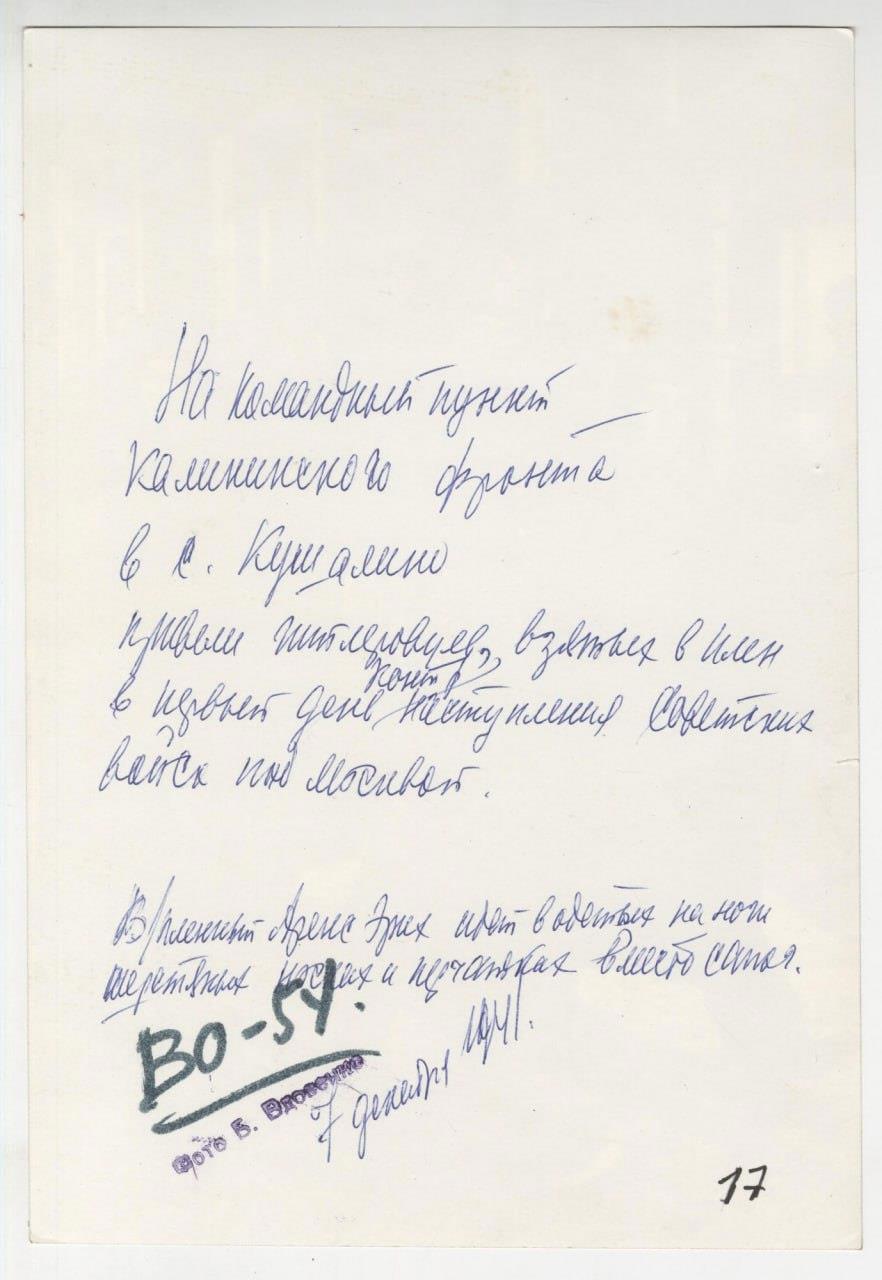 На командный пункт
Калининского фронта
в с. Кушалино
привели гитлеровцев, взятых в плен
контр
в первый день наступления советских
войск под Москвой.
В/пленный Аренс Эрих идет в одетых на ноги
шерстяных носках и перчатках вместо сапог.
ВО-54.
Фото Б. Вдовенко
7 декабря 1941.
17